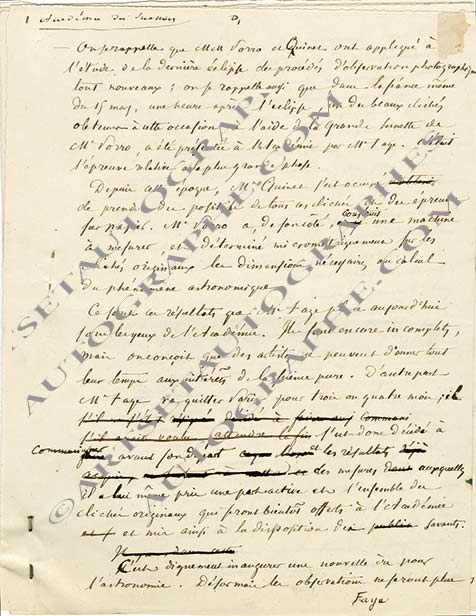 1 Académie des Sciences
On se rappelle que MM Porro et Quinet ont appliqué à
l'étude de la dernière éclipse des procédés d'observation photographique
tout nouveaux ; on se rappelle aussi que dans la séance même
du 15 mars, une heure après l'éclipse, de beaux clichés
obtenus à cette occasion à l'aide de la grande lunette de
Mr Porro, a été présenté à l'Académie par Mr Faye. C'était
l'épreuve relative à la plus grande phase.
Depuis cette époque, Mr Quinet s'est occupé
de prendre des positifs de tous ces clichés et des épreuves
sur papier. Mr Porro a de son côté, construit une machine
à mesurer, et déterminé micrométriquement sur les
clichés originaux les dimensions nécessaires au calcul
du phénomène astronomique.
Ce sont ces résultats que Mr Faye place aujourd'hui
sous les yeux de l'Académie. Ils sont encore incomplets,
mais on conçoit que des artistes ne peuvent donner tout
leur temps aux intérêts de la science pure. D'autre part
Mr Faye va quitter Paris pour trois ou quatre mois ; il
s'est donc décidé à
communiquer avant son départ les résultats
des mesures auxquelles
il a lui même pris une part active et l'ensemble des
clichés originaux qui seront bientôt offerts à l'Académie
et mis ainsi à la disposition des savants.
C'est dignement inaugurer une nouvelle ère pour
l'astronomie. Désormais les observations ne seront plus
Faye
© ARTSETAUTOGRAPHES.COM
AUTOGRAPHE.COM